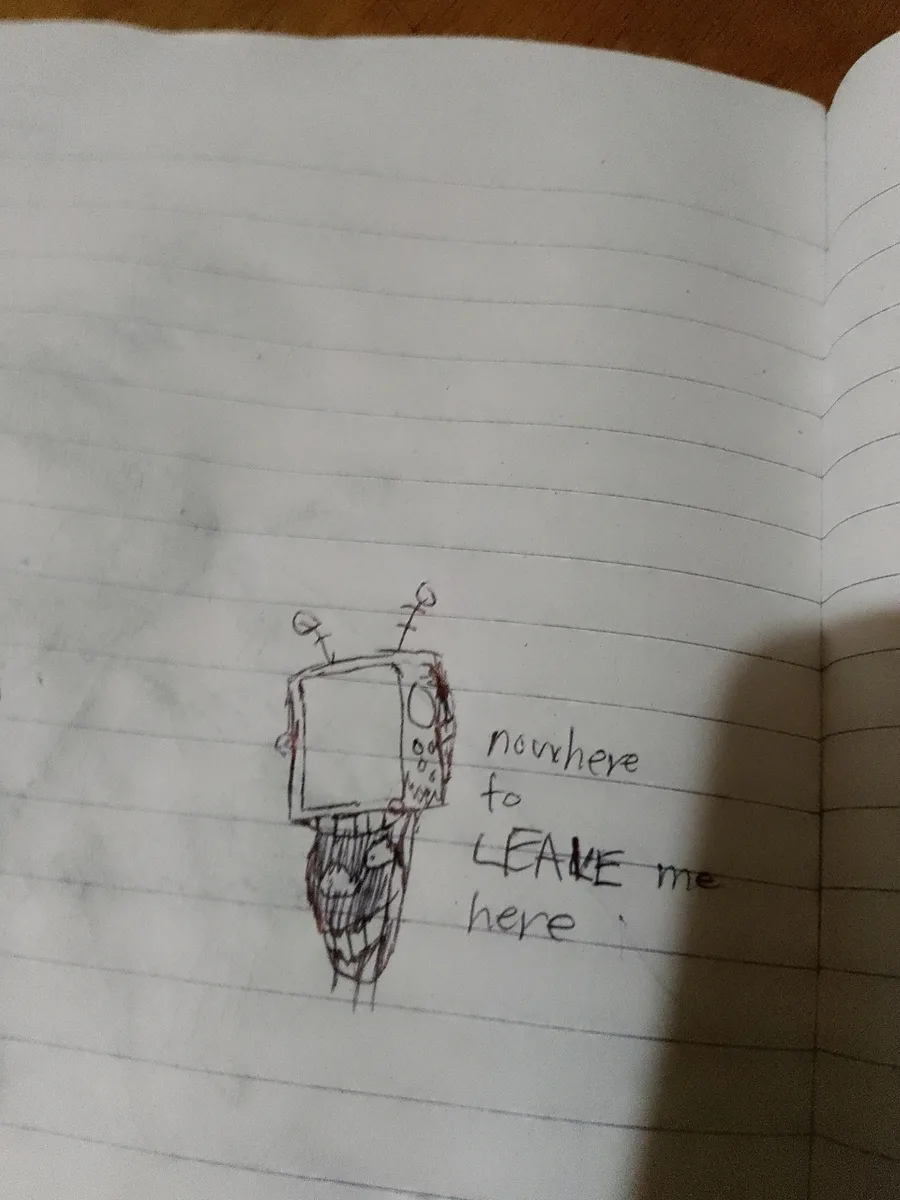 nowhere
to
LEAVE me
here